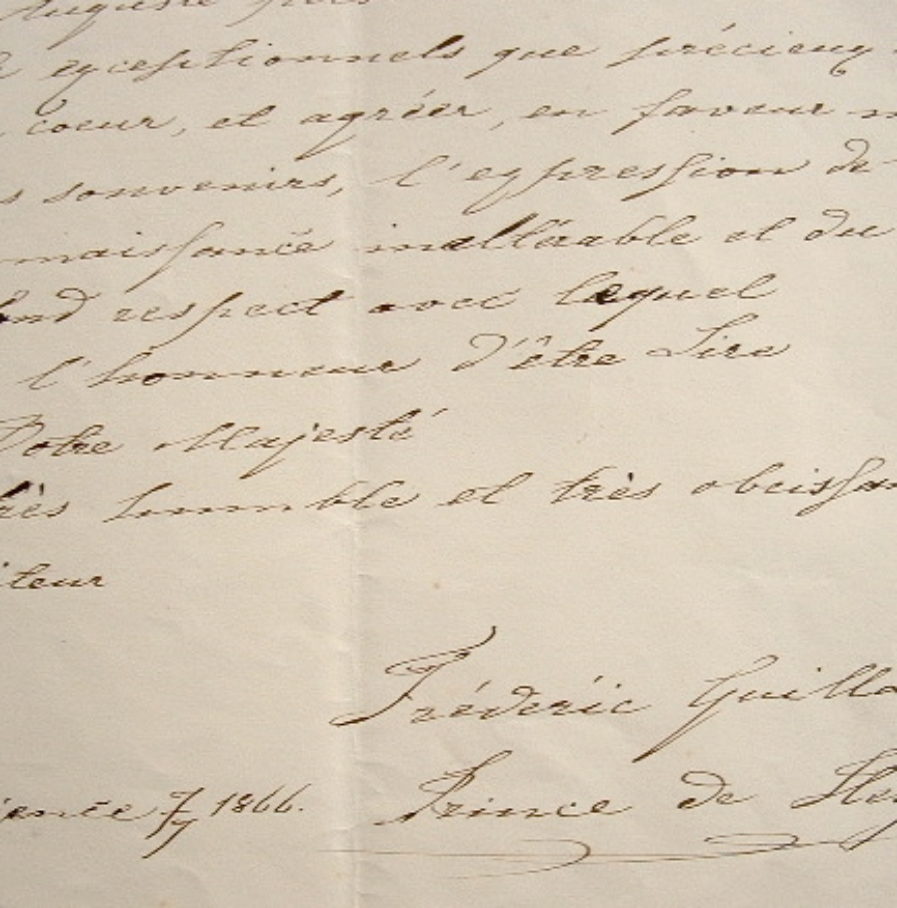 Auguste
exceptionnels que précieux
coeur, et agréer, en faveur
s souvenirs, l'expression de
naissance inaltérable et du
fond respect avec lequel
l'honneur d'être Sire
Votre Majesté
très humble et très obeissan
iteur
Fréderic Guilla
ience 7/7 1866. Prince de Hes